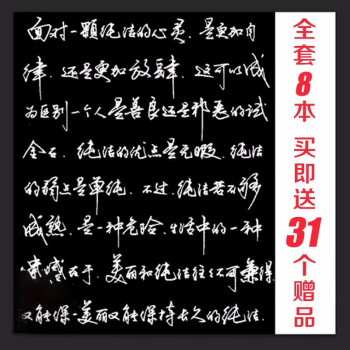 面对一颗纯洁的心灵．是更加自
律．还是更加放肆．这可以成
为区别一个人是善良还是邪恶的试
金石．纯洁的优点是无瑕．纯洁
的弱点是单纯．不过．纯洁若不够
成熟．是一种危险．生活中的一种
遗憾在于．美丽和纯洁往往不可兼得．
又能保一美丽又能保持长久的纯洁．
全套8本 买即送31个赠品